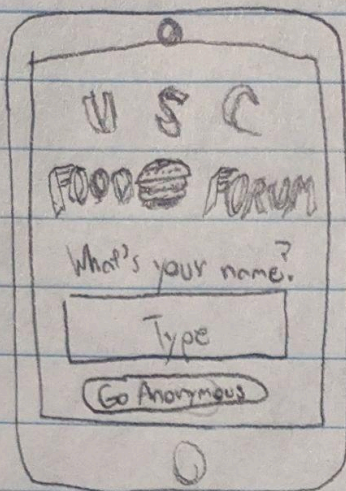 USC
FOOD FORUM
What's your name?
Type
Go Anonymous